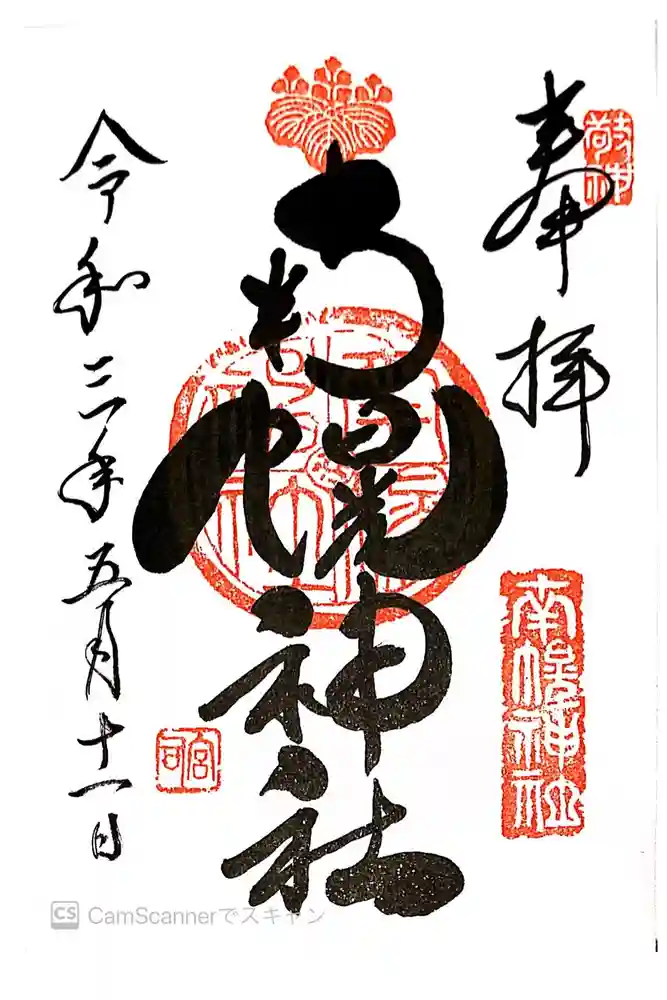 奉拝
敬神
南幌神社
南幌神社
令和三年五月十一日
宮司
CS CamScannerでスキャン